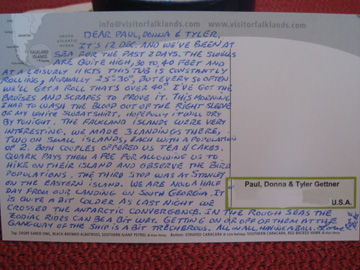 info@visitorfalklands.com · www.visitorfalklands.com
FALKLAND ISLANDS
DEAR PAUL, DONNA & TYLER,
IT'S 12 DEC. AND WE'VE BEEN AT
SEA FOR THE PAST 2 DAYS. THE SWELLS
ARE QUITE HIGH, 30 TO 40 FEET AND
AT A LEISURELY 11 KTS THIS TUB IS CONSTANTLY
ROLLING, NORMALLY 25°-30°, BUT EVERY SO OFTEN
WE'LL GET A ROLL THAT'S OVER 40°. I'VE GOT THE
BRUISES AND SCRAPES TO PROVE IT. THIS MORNING
I HAD TO WASH THE BLOOD OUT OF THE RIGHT SLEEVE
OF MY WHITE SWEATSHIRT, HOPEFULLY IT WILL DRY
BY TONIGHT. THE FALKLAND ISLANDS WERE VERY
INTERESTING. WE MADE 3 LANDINGS THERE,
TWO ON SMALL ISLANDS, EACH WITH A POPULATION
OF 2. BOTH COUPLES OFFERED US TEA & CAKES.
QUARK PAYS THEM A FEE FOR ALLOWING US TO
HIKE ON THEIR ISLAND AND OBSERVE THE BIRD
POPULATIONS. THE THIRD STOP WAS AT STANLEY
ON THE EASTERN ISLAND. WE ARE NOW A HALF
DAY FROM OUR LANDING ON SOUTH GEORGIA. IT
IS QUITE A BIT COLDER AS LAST NIGHT WE
CROSSED THE ANTARCTIC CONVERGENCE. IN THE ROUGH SEAS THE
ZODIAC RIDES CAN BE A BIT WILD. GETTING ON OR OFF OF THEM AT THE
GANGWAY OF THE SHIP IS A BIT TRECHEROUS. ALL IN ALL, HAVING A BALL.
Paul, Donna & Tyler Gettner
U.S.A.